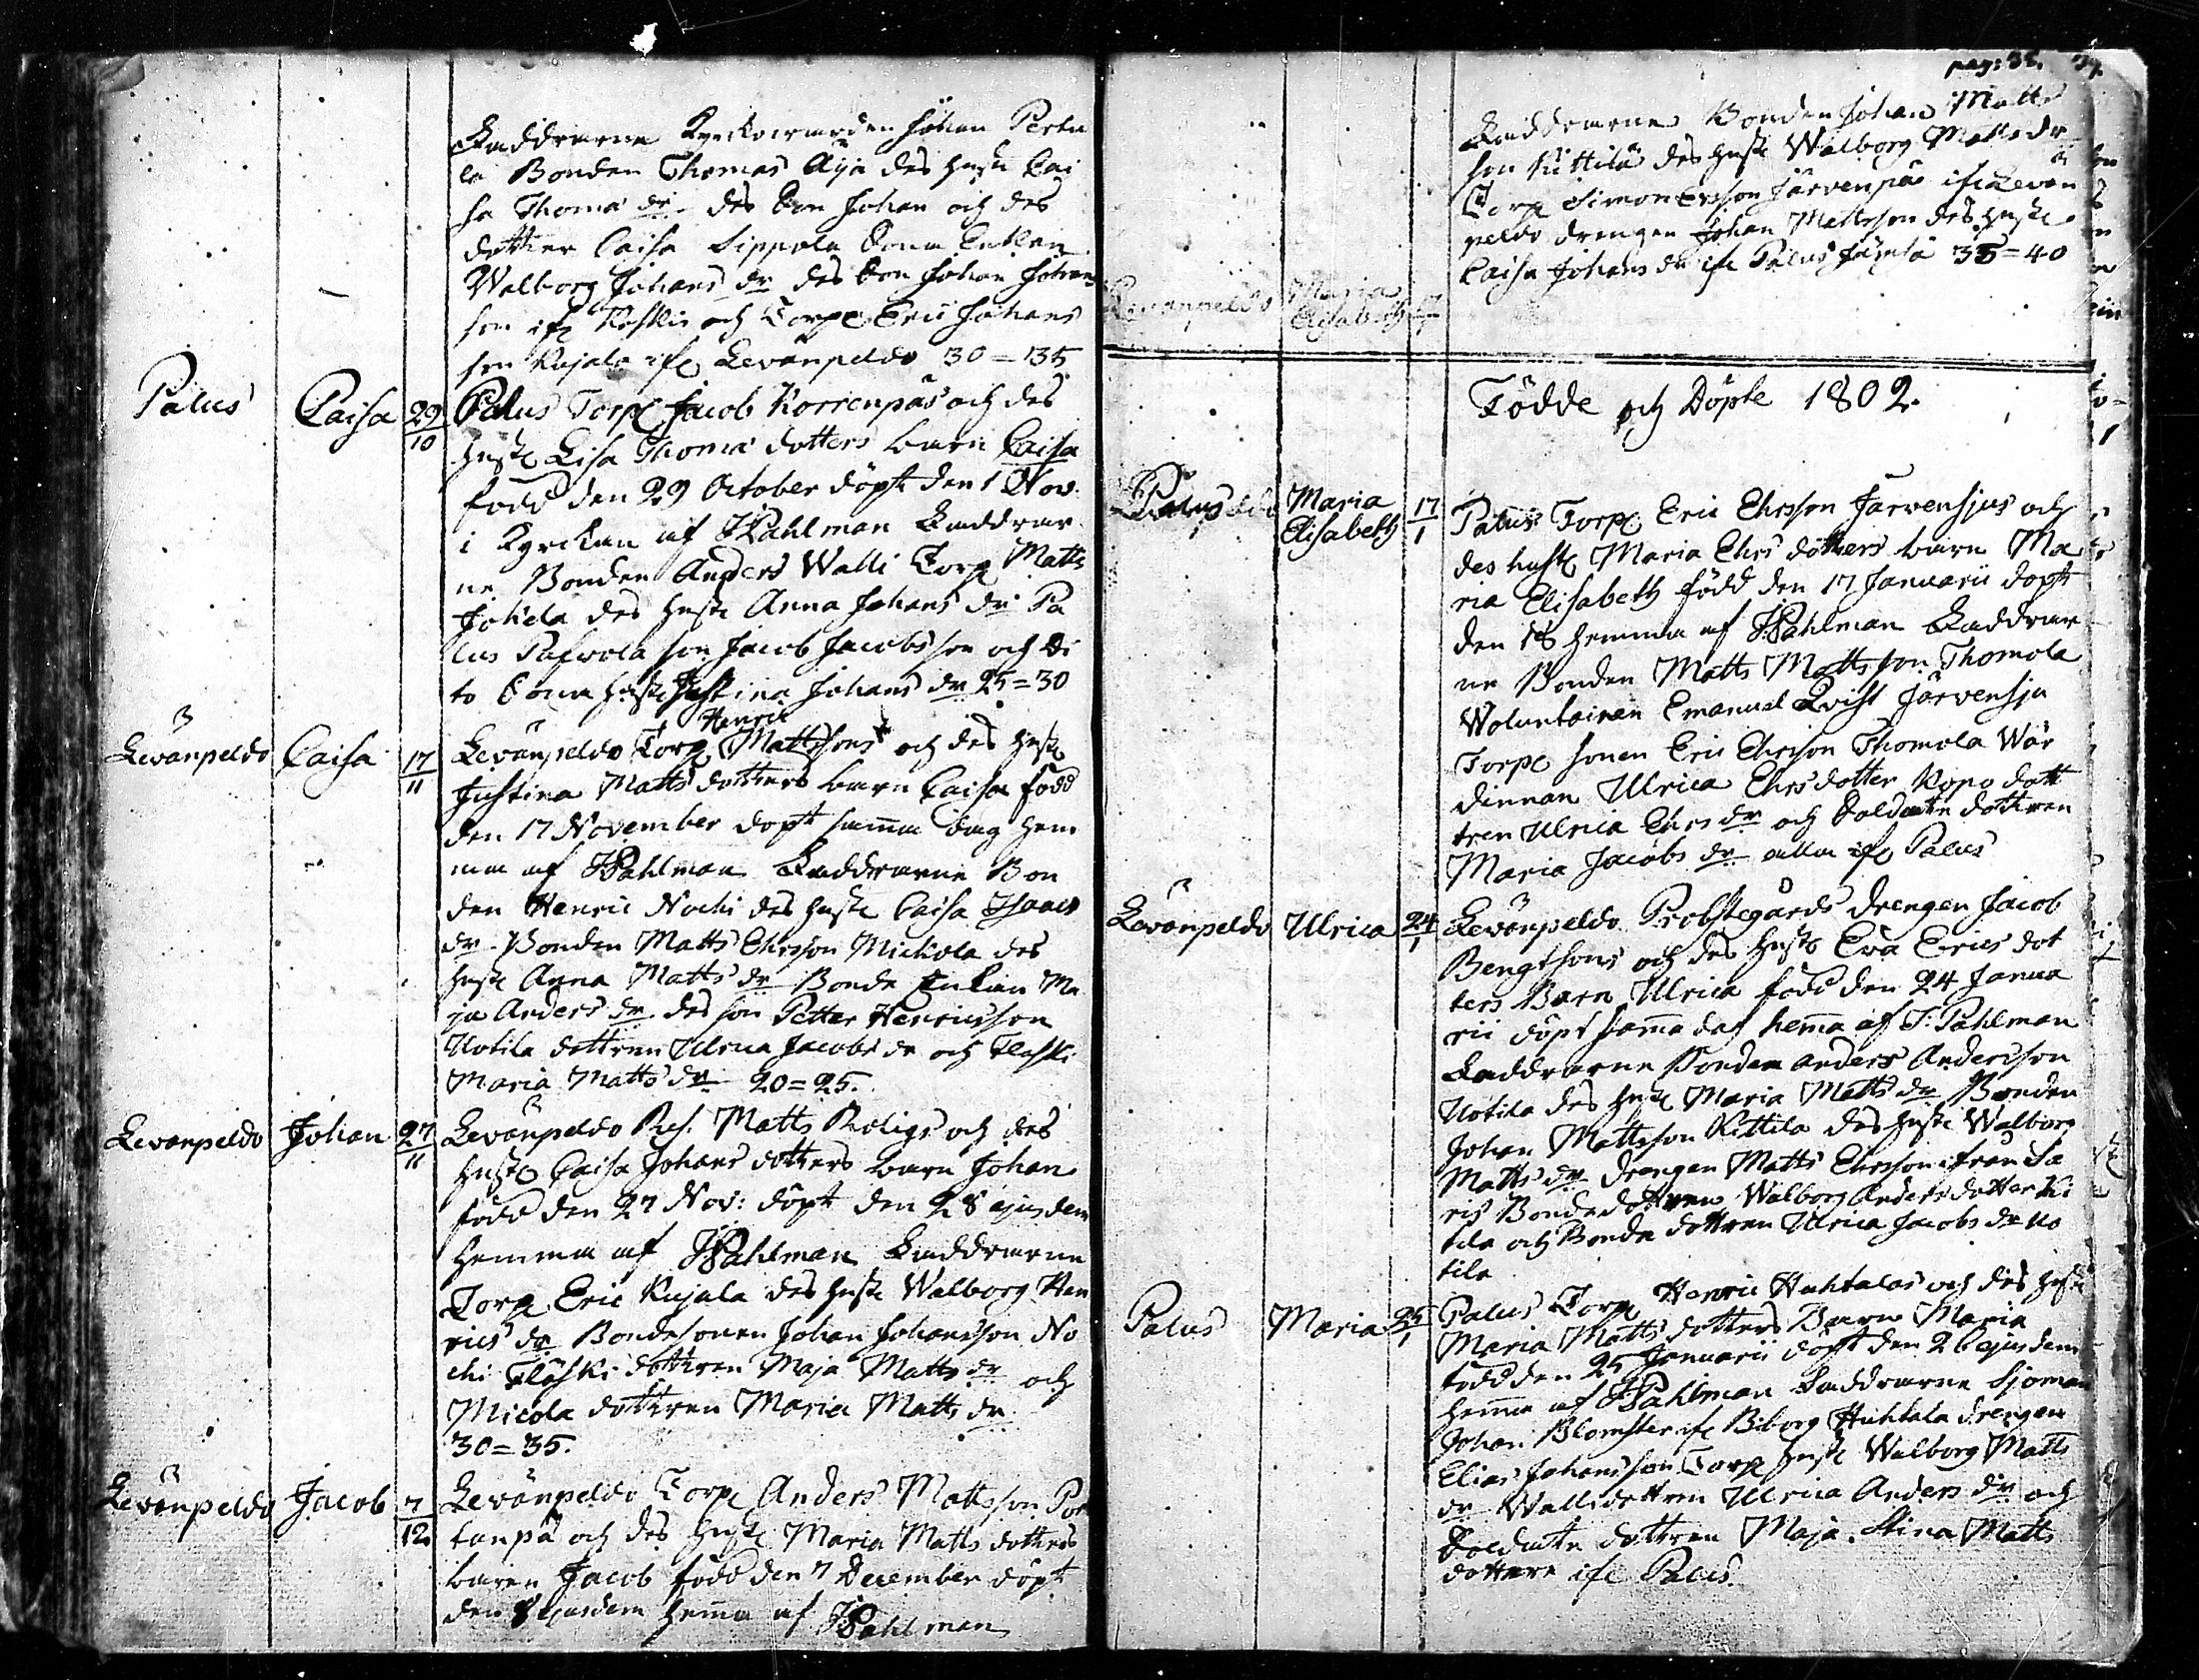 Faddrarne Kyrckovärden Johan Pertu
la Bonden Thomas Äijä des hust Cai
sa Thomæ dr des Son Johan och des
dotter Caisa Sippola Sonu Enkan
Walborg Johans dr des Son Johan Johans
son ifr Kostkis och Torp Eric Johans
son Kujala ifr Levänpeldo 30=35
Palus Caisa 29/10 Palus Torp Jacob Korrenpäs och des
hust Lisa Thomæ dotters barn Caisa
född den 29 October döpt den 1 Nov.
i Kyrckan af JPahlman Faddrar
ne Bonden Anders Walli Torp Matts
Jokela des hust Anna Johans dr Pa
lus Pafwola son Jacob Jacobsson och di
to Sonu hust Justina Johans dr 25=30
Levänpeldo Caisa 17/11 Levänpeldo Torp Henric Mattssons och des hust
Justina Matts dotters barn Caisa född
den 17 November döpt samma dag hem
ma af JPahlman Faddrarne Bon
den Henric Nochi des hust Caisa Isaacs
dr Bonden Matts Ehrsson Mickola des
hust Anna Matts dr Bonde Enkan Ma
ja Anders dr des son Petter Henricsson
Uotila dottren Ulrica Jacobs dr och Flaski
Maria Matts dr 20=25.
Levänpeldo Johan 27/11 Levänpeldo Res. Matts Roligs och des
hust Caisa Johans dotters barn Johan
född den 27 Nov: döpt den 28 ejusdem
hemma af JPahlman Faddrarne
Torp Eric Kujala des hust Walborg Hen
rics dr Bondesonen Johan Johansson No
chi Fläski dottren Maja Matts dr och
Micola dottren Maria Matts dr
30=35.
Levänpeldo Jacob 7/12 Levänpeldo Torp Anders Mattsson Por
tanpä och des hust Maria Matts dotters
barn Jacob född den 7 December döpt
den 8 ejusdem hema af JPahlman
pag: 38. 39.
Faddrarne Bonden Johan Matts
son Kittilä des hust Walborg Matts dr
Torp Simon Ersson Järvenpä ifr Levän
peldo drengen Johan Mattsson des hust
Caisa Johans dr ifr Palus Jämsä 35=40
Levänpeldo Maria Elisabeth 17/1
Födde och Döpte 1802.
Palus Maria Elisabeth 17/1 Palus Torp Eric Ehrsson Järvensjus och
des hust Maria Ehrs dotters barn Ma
ria Elisabeth född den 17 Januarii döpt
den 18 hemma af JPahlman Faddrar
ne Bonden Matts Mattsson Thomola
Woluntairen Emanuel Qvist Järvensju
Torp sonen Eric Ehrsson Thomola Wär
dinnan Ulrica Ehrs dotter Kopo dott
tren Ulrica Ehrs dr och Soldate dottren
Maria Jacobs dr alla ifr Palus
Levänpeldo Ulrica 24/1 Levänpeldo Probstegårds drengen Jacob
Bengtsons och des hust Eva Erics dot
ters Barn Ulrica född den 24 Janua
rii döpt samma dag hema af J: Pahlman
Faddrarne Bonden Anders Andersson
Uotila des hust Maria Matts dr Bonden
Johan Mattsson Kittila des hust Walborg
Matts dr drengen Matts Ehrsson ifrån Sa
ris Bondedottren Walborg Anders dotter Ki
tila och Bonde dottren Ulrica Jacobs dr Uo
tila
Palus Maria 25/1 Palus Torp Henric Huhtalas och des hust
Maria Matts dotters Barn Maria
född den 25 Januarii döpt den 26 ejusdem
hema af JPahlman Faddrarne Sjöman
Johan Blomster ifr Biborg Huhtala drengen
Elias Johansson Torp hust Walborg Matts
dr Walli dottren Ulrica Anders dr och
Soldate dottren Maja Stina Matts
dotter ifr Palus.